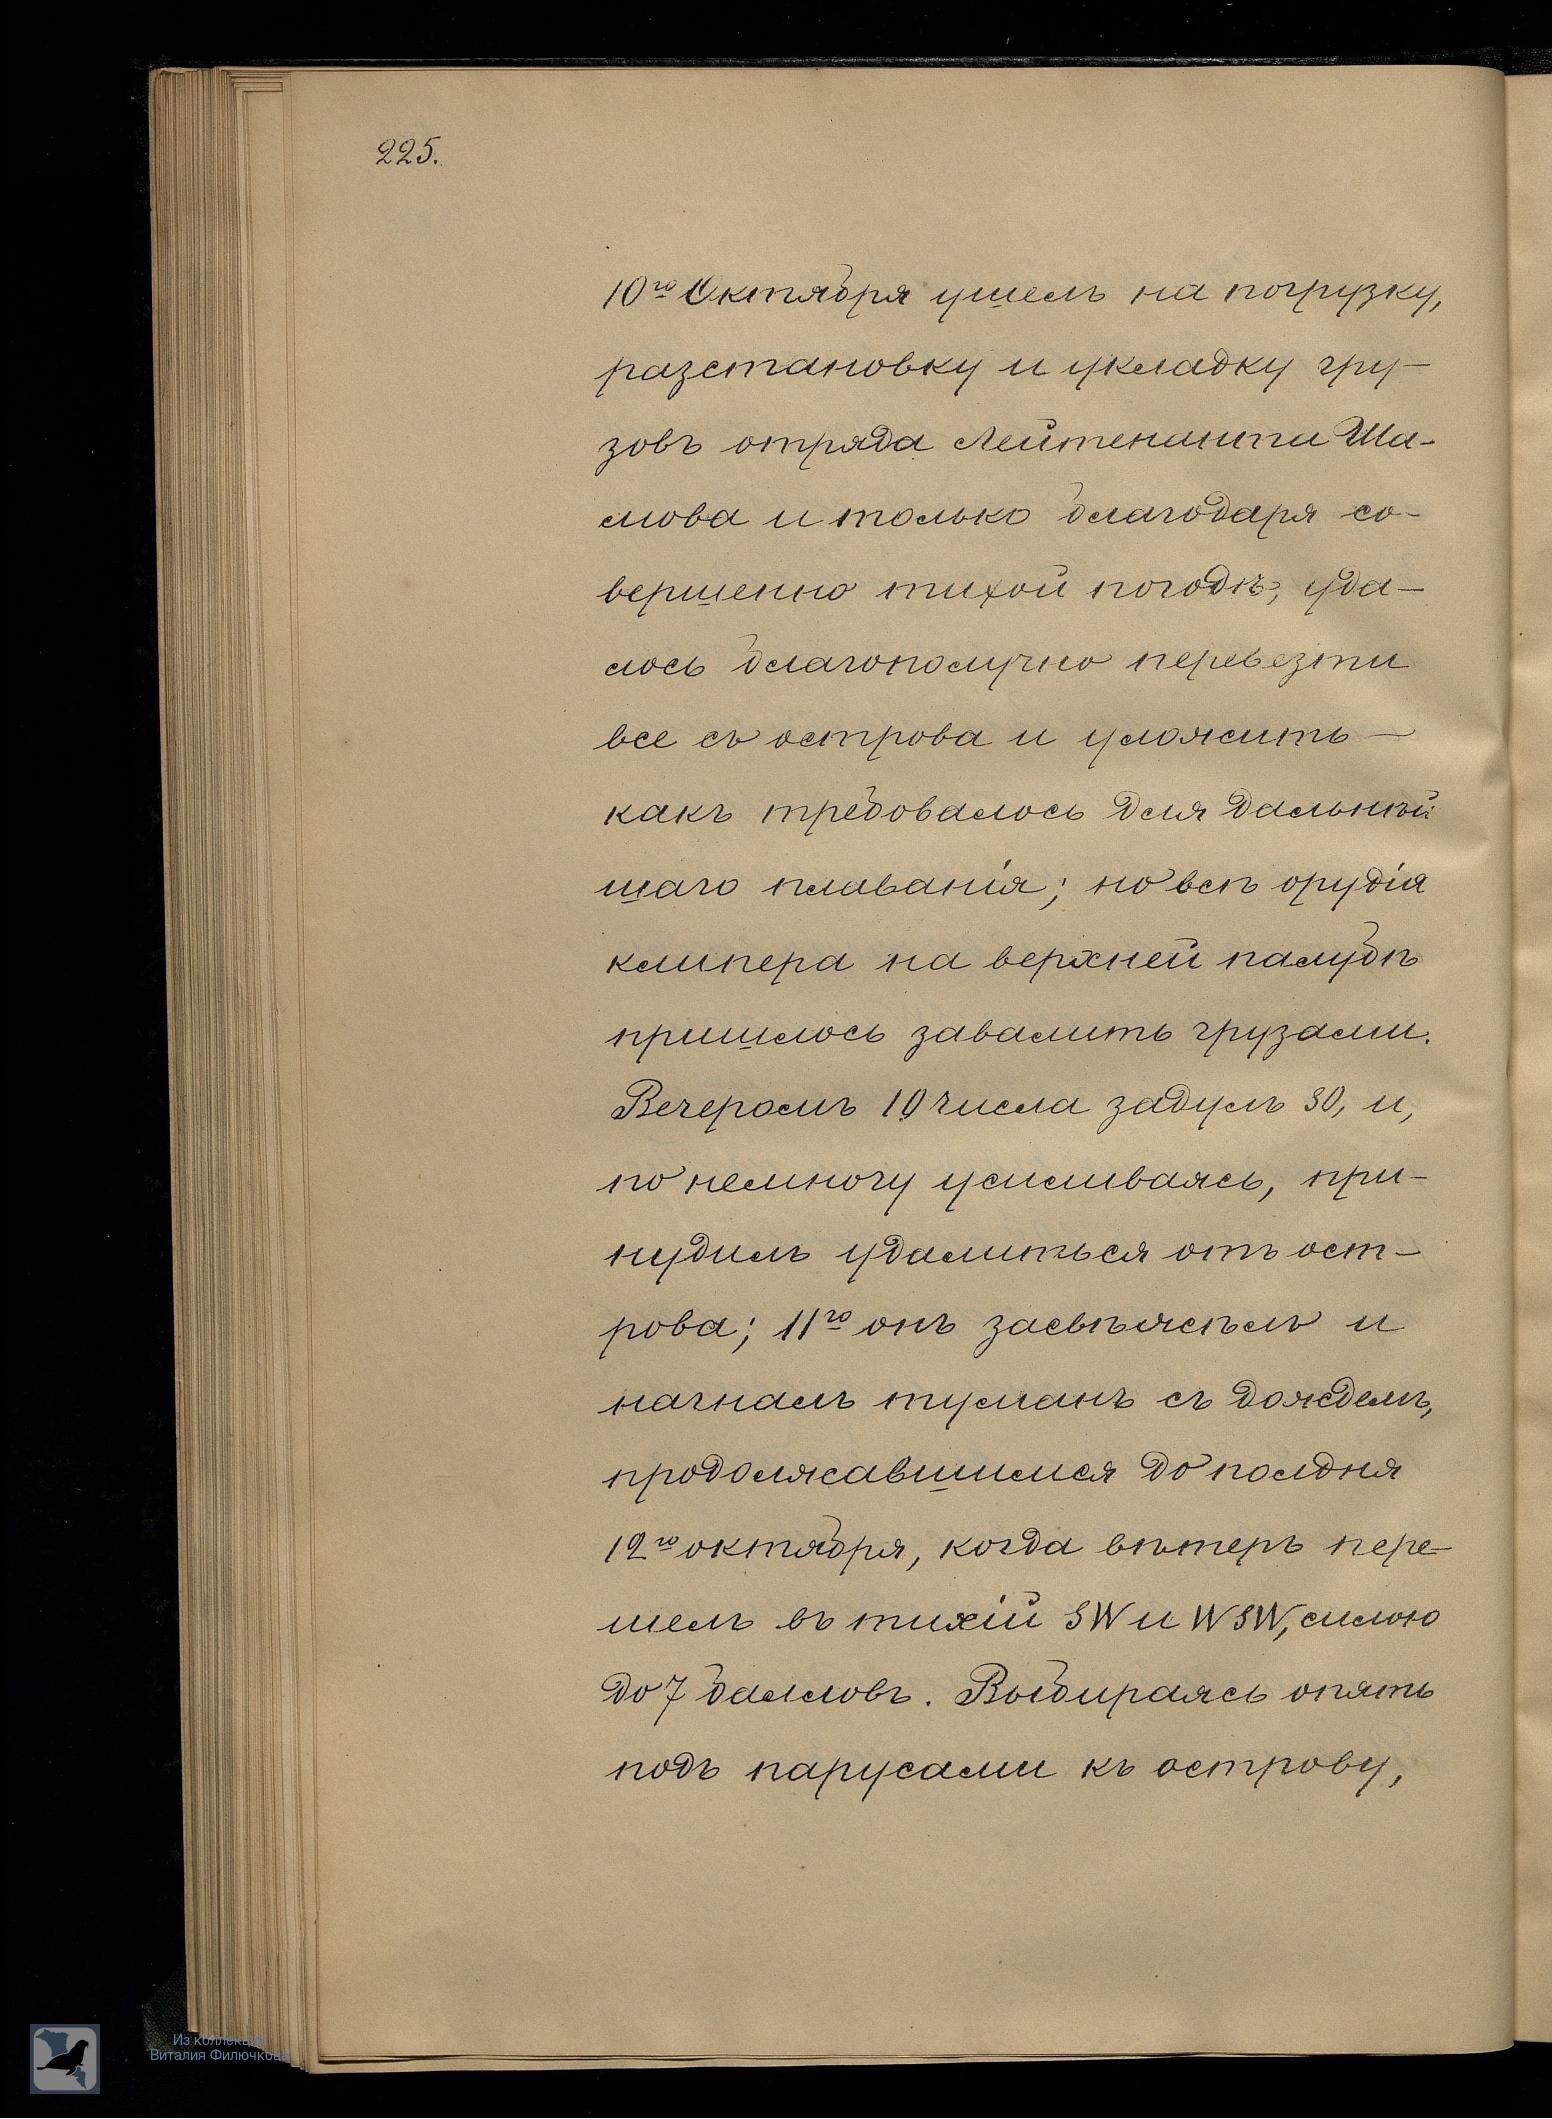 225.
10го Октября ушелъ на погрузку,
разстановку и укладку гру-
зовъ отряда Лейтенанта Ша-
мова и только благодаря со-
вершенно тихой погодѣ, уда-
лось благополучно перевезти
все съ острова и уложить —
какъ требовалось для дальнѣй
шаго плаванія; но всѣ орудія
клипера на верхней палубѣ
пришлось завалить грузами.
Вечеромъ 10 числа задулъ SO, и,
по немногу усиливаясь, при-
нудилъ удалиться отъ ост-
рова; 11го онъ засвѣжѣлъ и
нагналъ туманъ съ дождемъ,
продолжавшимся до полдня
12го октября, когда вѣтеръ пере-
шелъ въ тихій SW и WSW, силою
до 7 балловъ. Выбираясь опять
подъ парусами къ острову,
Из коллекции
Виталия Филючкова